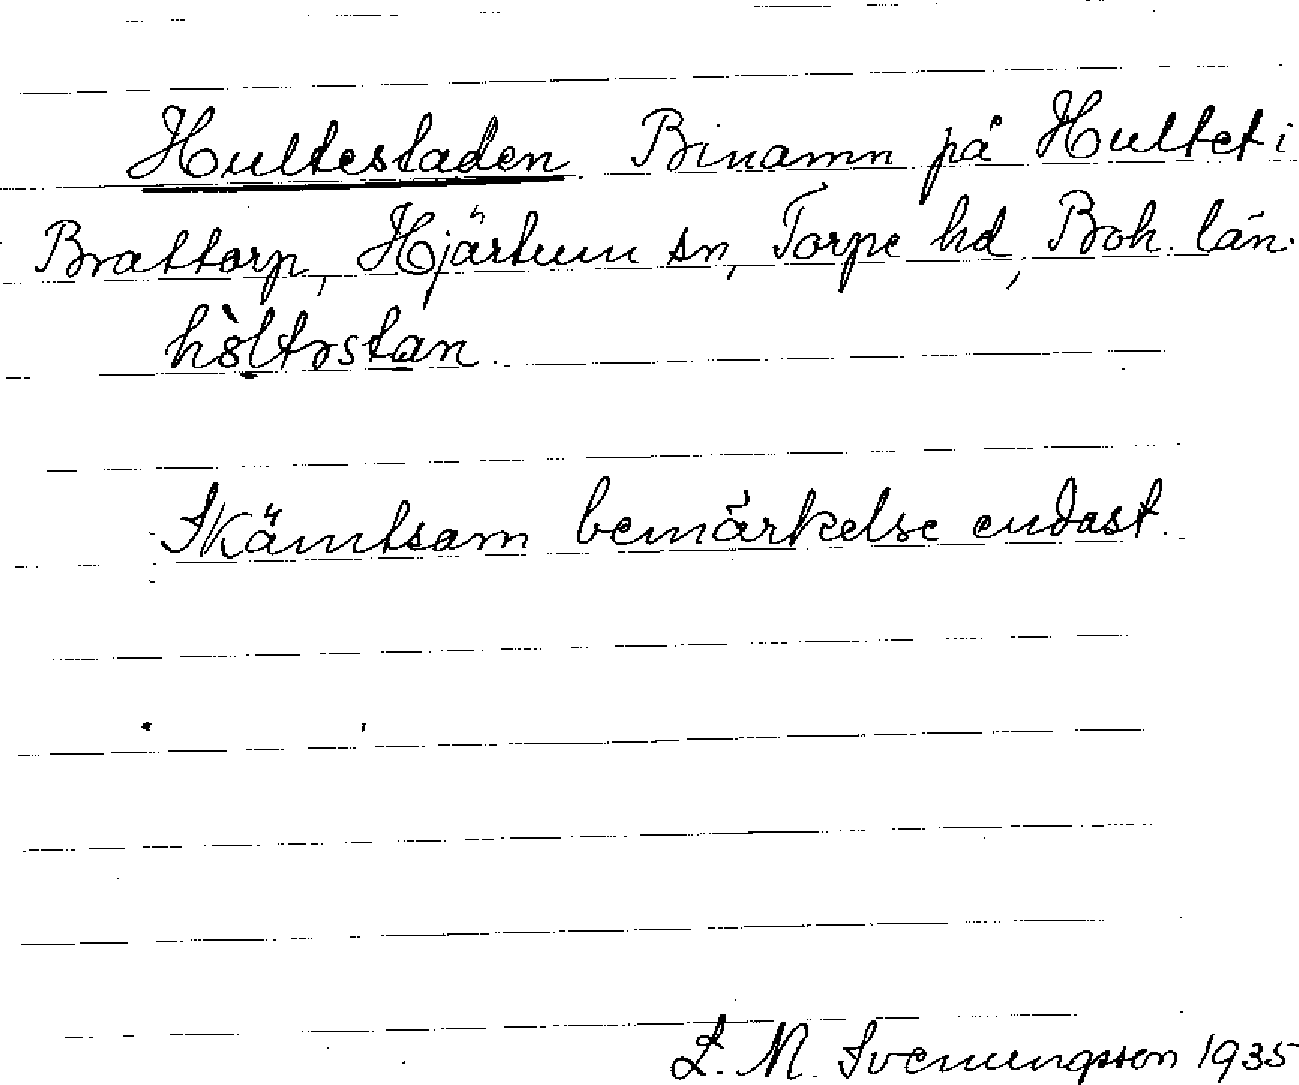 Hultestaden. Binamn på Hultet i
Brattorp, Hjärtum sn, Torpe hd, Boh. län.
Skämtsam bemärkelse endast.
L. M. Svenungsson 1935